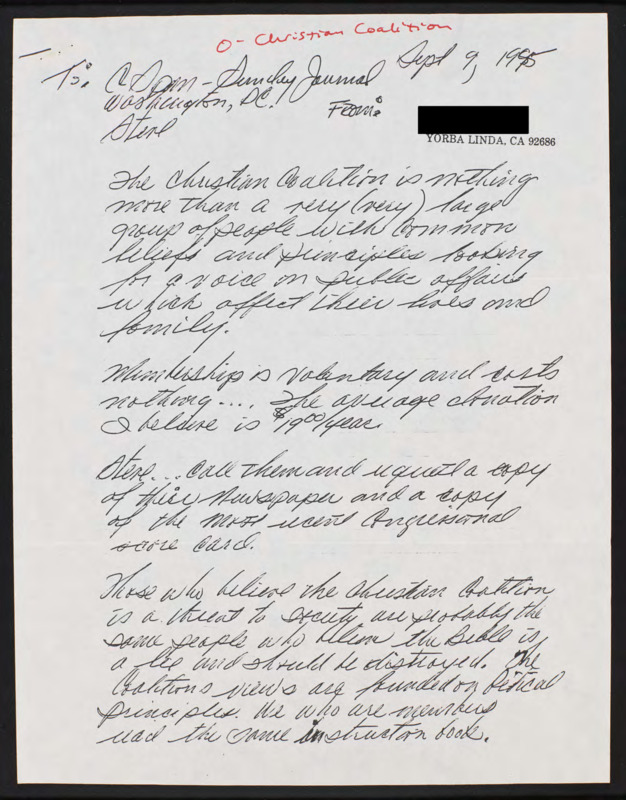 O - Christian Coalition
Sept 9, 1995
To: C Span - Sunday Journal
Washington, DC.
From:
Steve
YORBA LINDA, CA 92686
The Christian Coalition is nothing
more than a very (very) large
group of people with common
beliefs and principles looking
for a voice on public affairs
which affect their lives and
family.
Membership is voluntary and costs
nothing.... The average donation
I believe is $1900/year.
Steve... call them and request a copy
of their Newspaper and a copy
of the most recent Congressional
score card.
Those who believe the Christian Coalition
is a threat to society are probably the
same people who believe the Bible is
a lie and should be distroyed. The
Coalitions views are founded on
principles. We who are members
read the same instruction book.